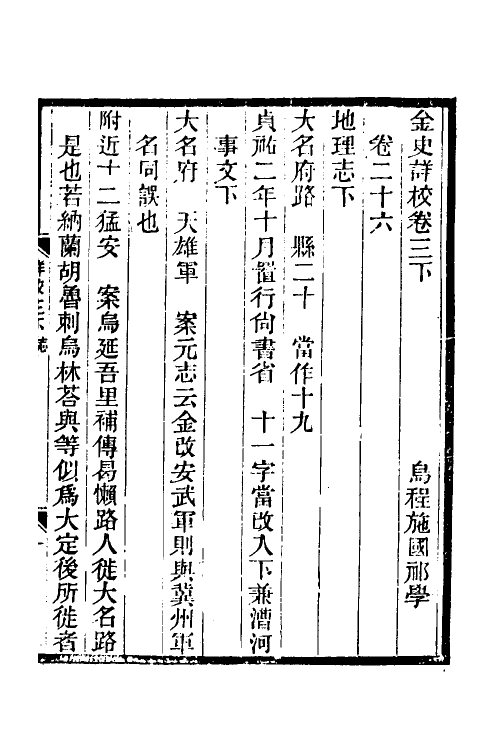 金史詳校卷三下　烏程施國祁學
卷二十六
地理志下
大名府路　縣二十　當作十九
貞祐二年十月置行尙書省　十一字當改入下兼漕河
事文下
大名府　天雄軍　案元志云金改安武軍則與冀州軍
名同誤也
附近十二猛安　案烏延吾里補傳曷懶路人徙大名路
是也若納蘭胡魯剌烏林荅與等似爲大定後所徙者